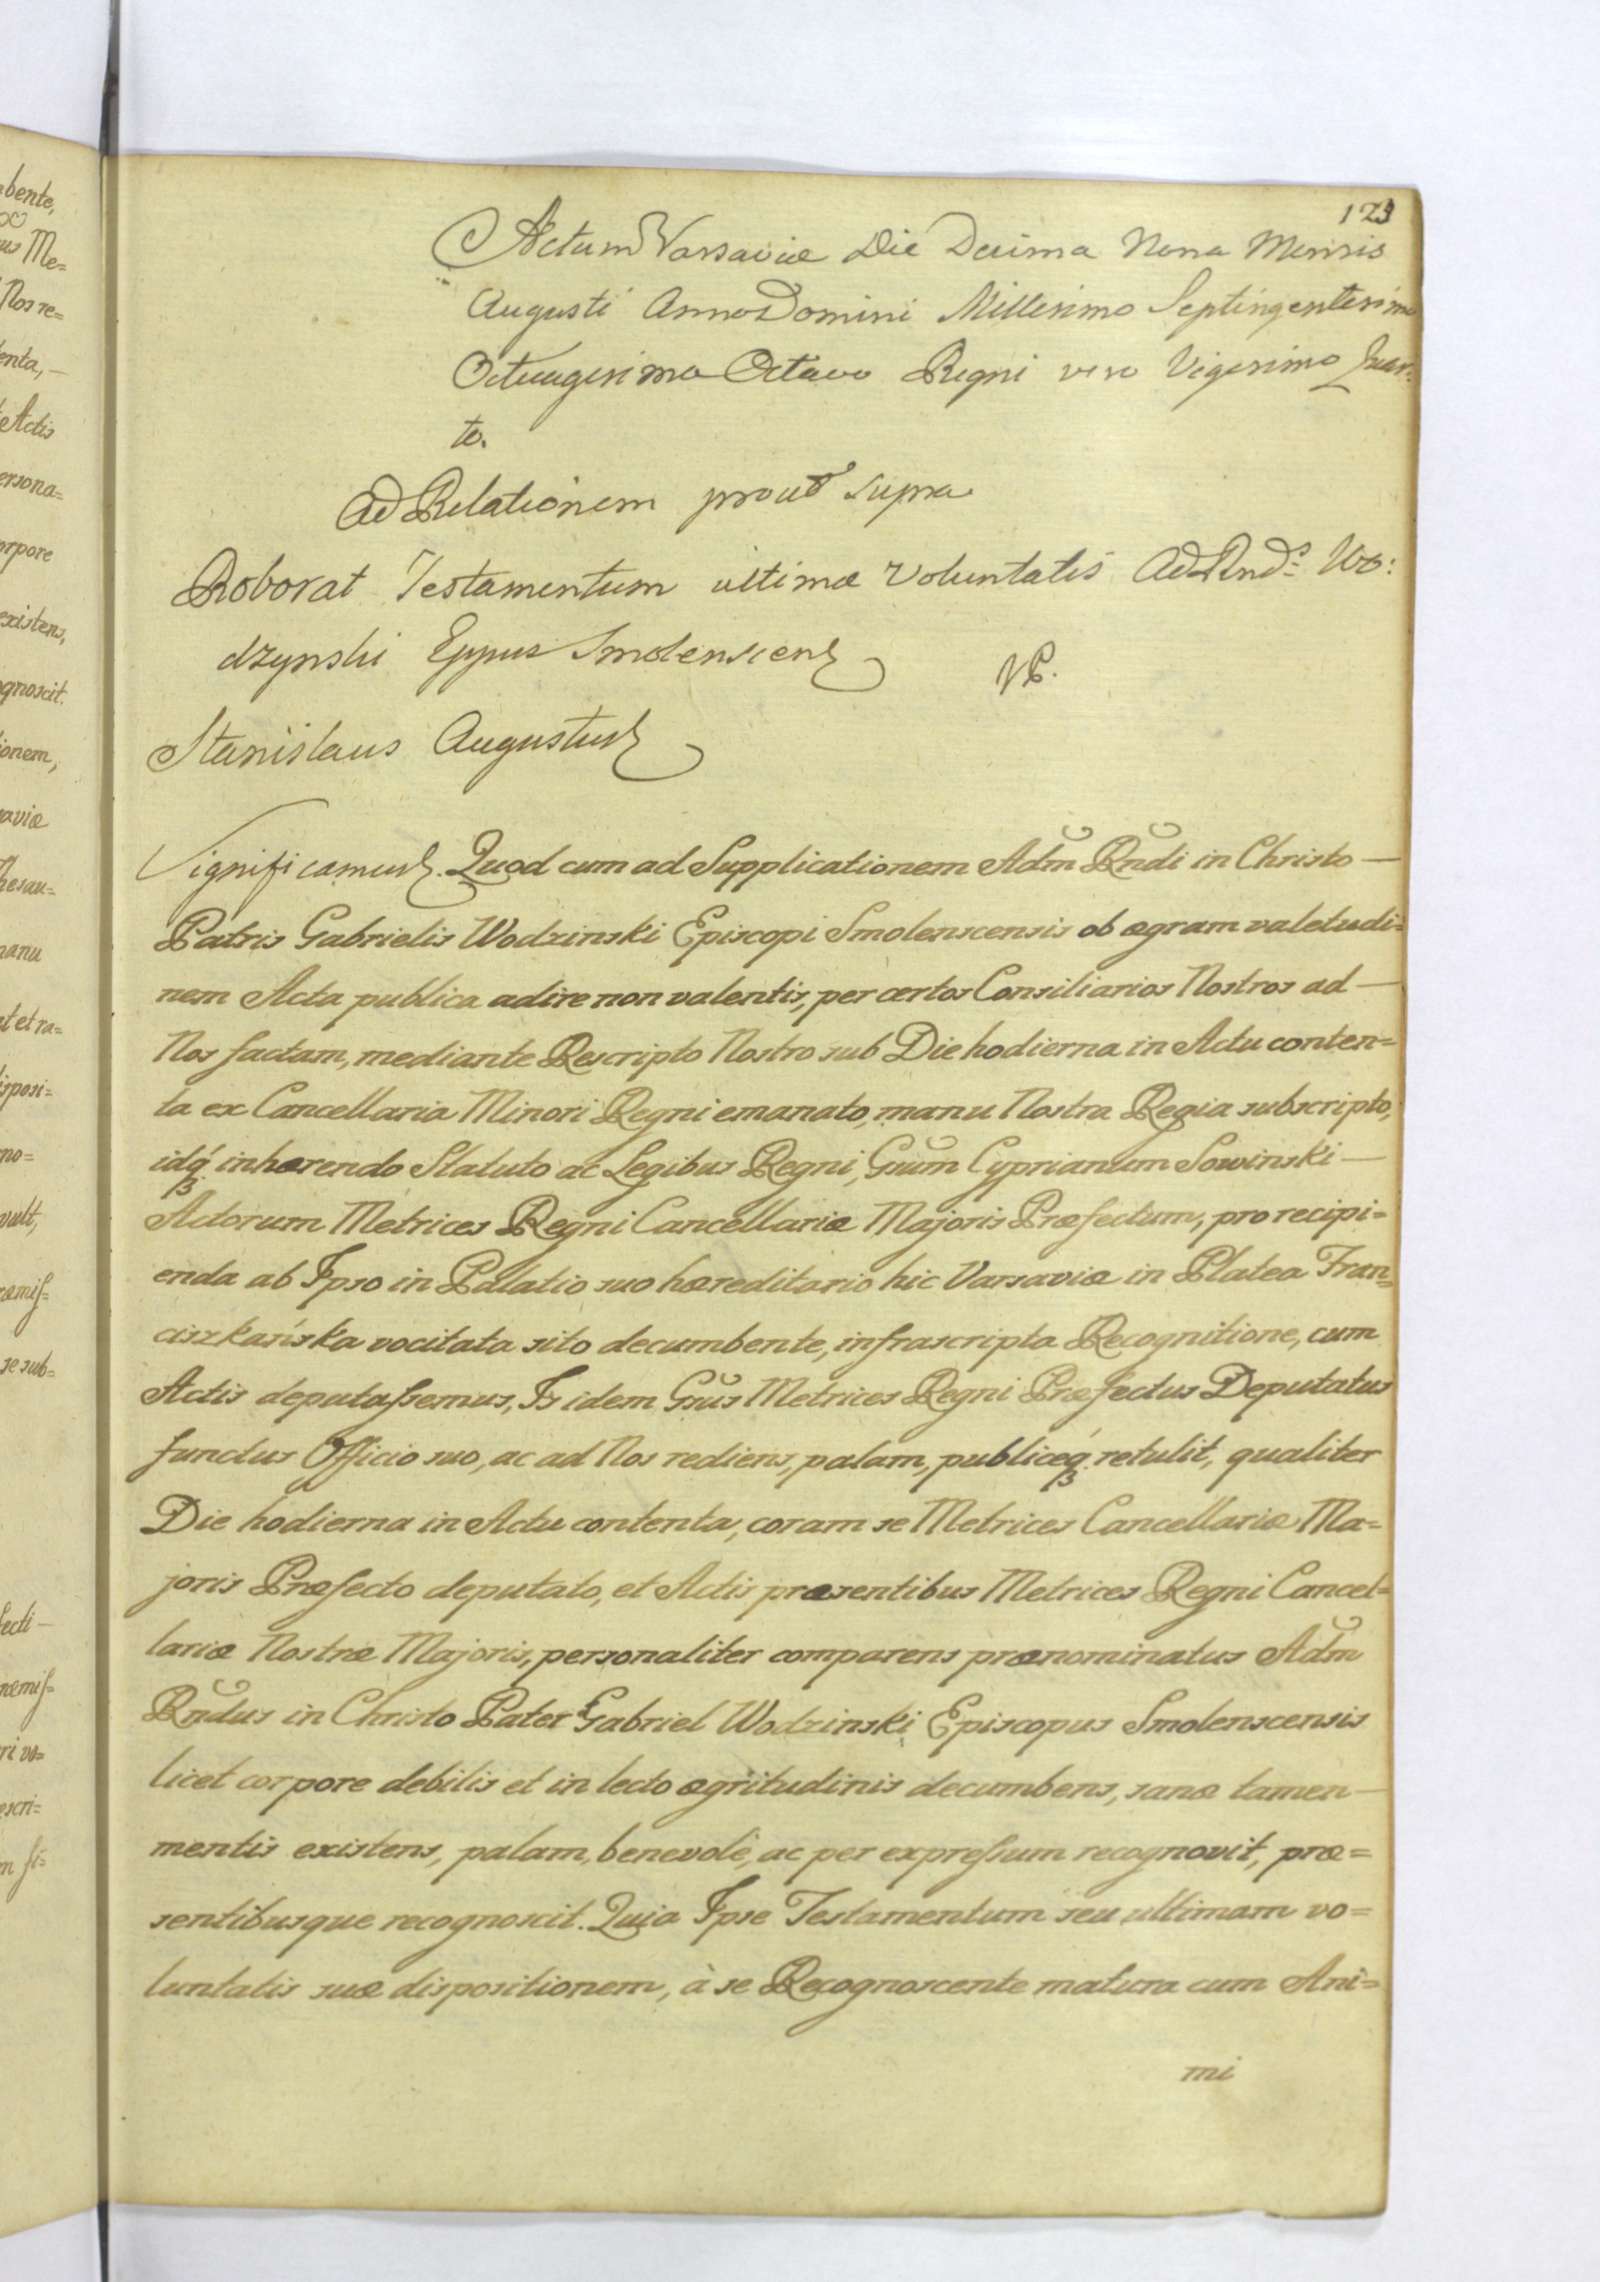 123
Actum Varsaviæ Die Decima Nona Mensis
Augusti Anno Domini Millesimo Septingentesimo
Octuagesimo Octavo Regni vero Vigesimo Quar-
to.
Ad Relationem prout supra
Roborat Testamentum ultimæ Voluntatis AdRnds Wo:
dzynski Eppus Smolenscens
Stanislaus Augustus
Significamus. Quod cum ad Supplicationem Adm̃ Rñdi in Christo —
Patris Gabrielis Wodzinski Episcopi Smolenscensis ob ægram valetudi=
nem Acta publica adire non valentis, per certos Consiliarios Nostros ad —
Nos factam, mediante Rescripto Nostro sub Die hodierna in Actu conten=
ta ex Cancellaria Minori Regni emanato, manu Nostra Regia subscripto,
idq́ inhærendo Statuto ac Legibus Regni, Gsum̃ Cyprianum Sowinski —
Actorum Metrices Regni Cancellariæ Majoris Præfectum, pro recipi=
enda ab Ipso in Palatio suo hæreditario hic Varsaviæ in Platea Fran=
ciszkańska vocitata sito decumbente, infrascripta Recognitione, cum
Actis deputassemus, Is idem Gsũs Metrices Regni Præfectus Deputatus
functus Officio suo, ac ad Nos rediens, palam, publiceq́ retulit, qualiter
Die hodierna in Actu contenta, coram se Metrices Cancellariæ Ma=
joris Præfecto deputato, et Actis præsentibus Metrices Regni Cancel=
lariæ Nostræ Majoris, personaliter comparens prænominatus Adm̃
Rñdus in Christo Pater Gabriel Wodzinski Episcopus Smolenscensis
licet corpore debilis et in lecto ægritudinis decumbens, sanæ tamen —
mentis existens, palam, benevolè, ac per expressum recognovit, præ=
sentibusque recognoscit. Quia Ipse Testamentum seu ultimam vo=
luntatis suæ dispositionem, à se Recognoscente matura cum Ani=
mi